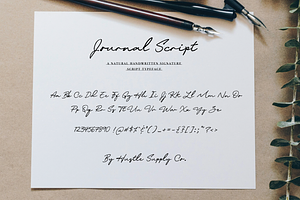 Journal Script
A NATURAL HANDWRITTEN SIGNATURE
SCRIPT TYPEFACE
Aa Bb Cc Dd Ee Ff Gg Hh Ii Jj Kk Ll Mm Nn Oo
Pp Qq Rr Ss Tt Uu Vv Ww Xx Yy Zz
By Hustle Supply Co.